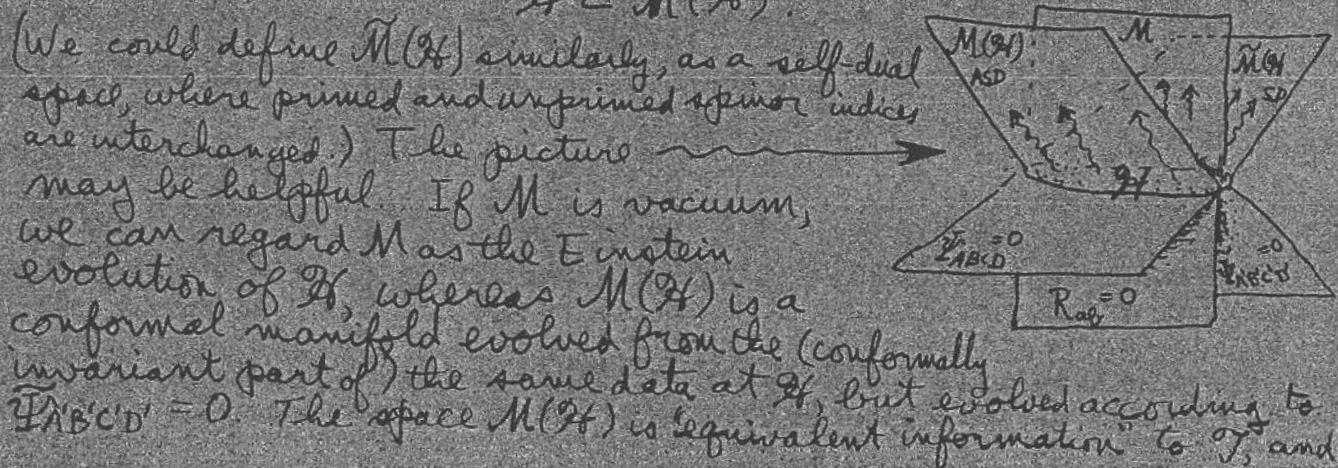 (We could define M̃(ℋ) similarly, as a self-dual
space, where primed and unprimed spinor indices
are interchanged.) The picture
may be helpful. If M is vacuum,
we can regard M as the Einstein
evolution of ℋ, whereas M(ℋ) is a
conformal manifold evolved from the (conformally
invariant part of) the same data at ℋ, but evolved according to
Ψ̃A'B'C'D' = 0. The space M(ℋ) is "equivalent information" to 𝒯, and
M(ℋ)
ASD
M
M̃(ℋ
SD
ℋ
ΨABCD = 0
Rab = 0
=0
Ψ̃A'B'C'D'